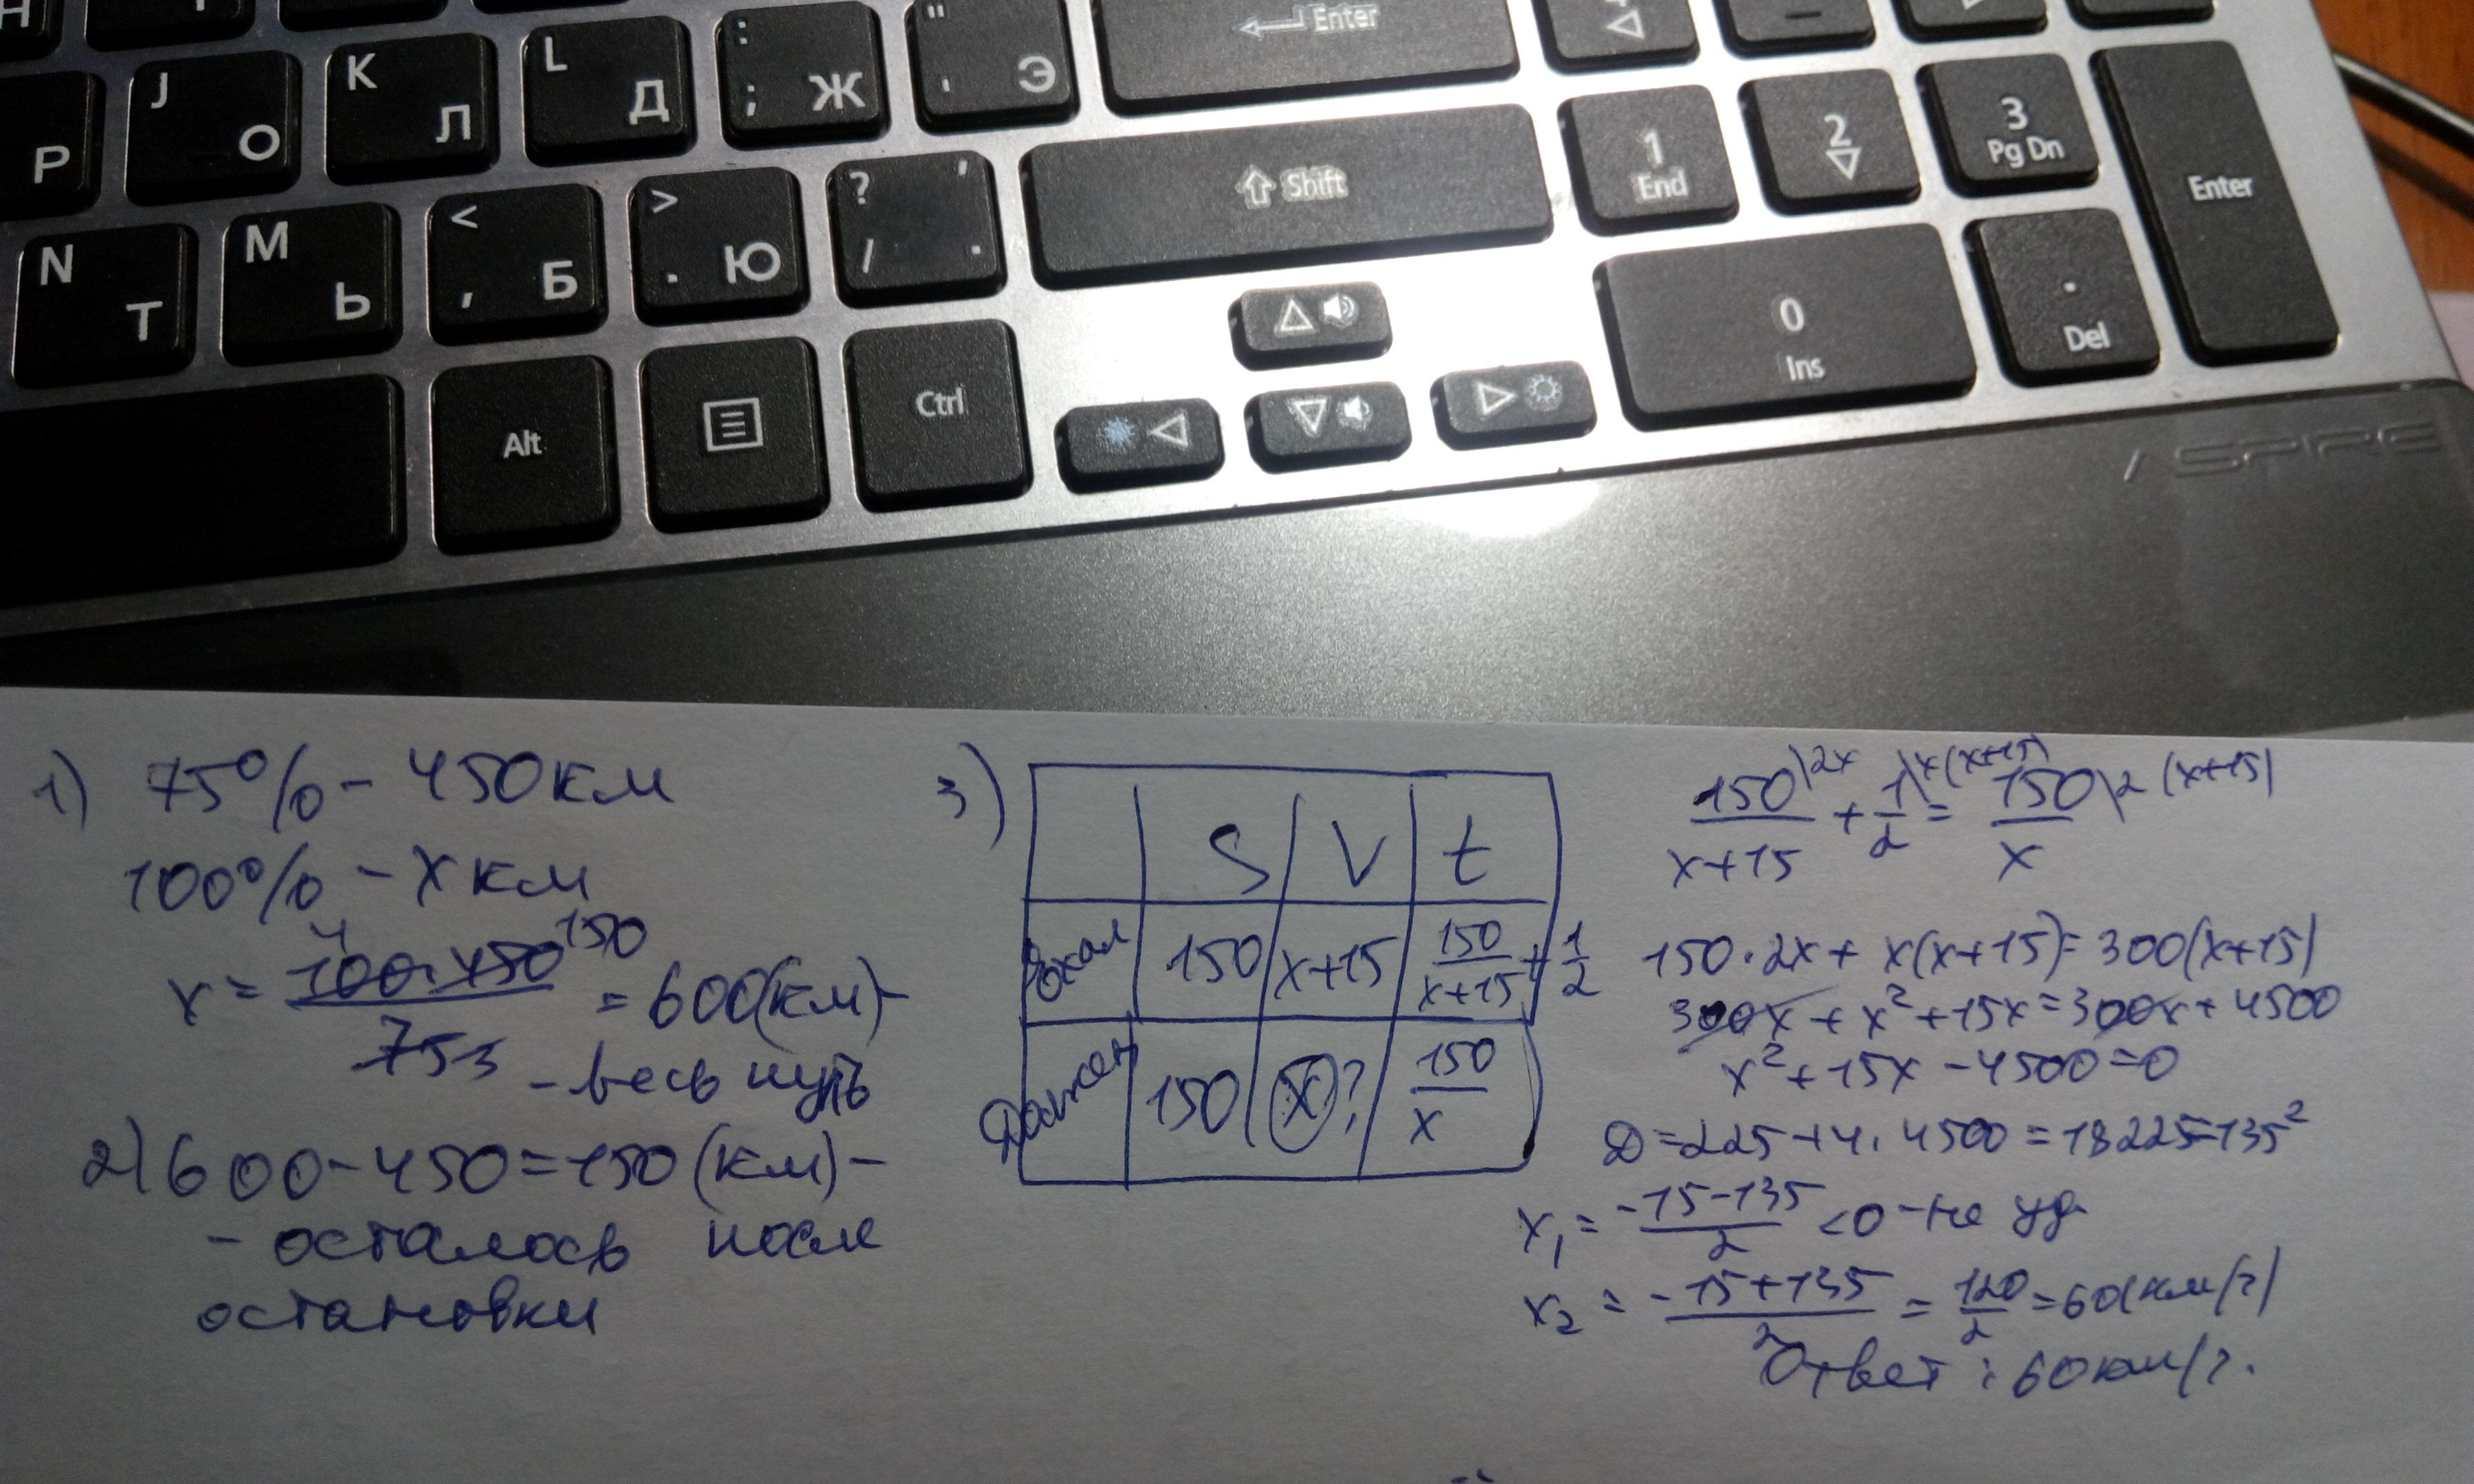 Enter
J О K Л L Д : ; Ж " ' Э
Р
Shift 1 End 2 3 Pg Dn Enter
N Т M Ь < , Б > . Ю ? / ' .
0 Ins . Del
Alt Ctrl
ASPIRE
1) 75% - 450 км
100% - х км
х = 100·450 / 75 = 600(км) -
4 150 3
- весь путь
2) 600-450=150 (км) -
- осталось после
остановки
3)
S V t
Ехал 150 x+15 150/(x+15) + 1/2
Должен 150 (x)? 150/x
150/(x+15) \2x + 1/2 \x(x+15) = 150/x \2(x+15)
150·2x + x(x+15) = 300(x+15)
300x + x² + 15x = 300x + 4500
x² + 15x - 4500 = 0
D = 225 + 4·4500 = 18225 = 135²
x₁ = (-15-135)/2 <0 - не уд.
x₂ = (-15+135)/2 = 120/2 = 60(км/ч)
Ответ: 60 км/ч.